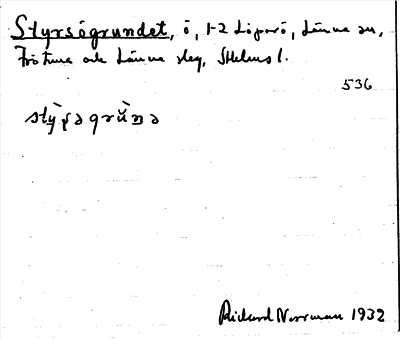 Styrsögrundet, ö, 1-2 Löparö, Länna sn,
Frötuna och Länna slg, Sthlms l.
536
stỳṣəgrùnə
Rickard Norrman 1932